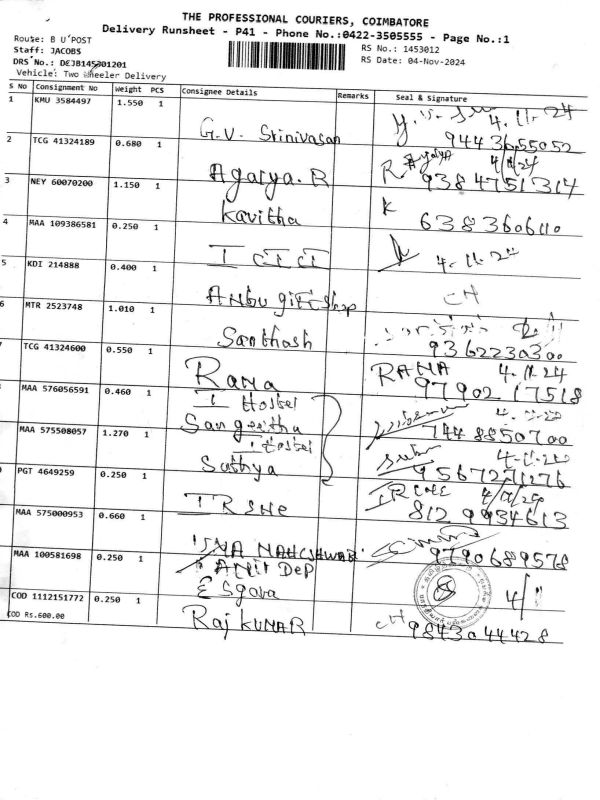 THE PROFESSIONAL COURIERS, COIMBATORE
Delivery Runsheet - P41 - Phone No.:0422-3505555 - Page No.:1
Route: B U'POST
RS No.: 1453012
Staff: JACOBS
RS Date: 04-Nov-2024
DRS No.: DCJB145301201
Vehicle: Two Wheeler Delivery
S No Consignment No Weight PCS Consignee Details Remarks Seal & Signature
1 KMU 3584497 1.550 1 G.V. Srinivasan 4.11.24
9443655052
2 TCG 41324189 0.680 1 Agalya.R R Agalya 4/11/24
9384751314
3 NEY 60070200 1.150 1 Kavitha K 6383606110
4 MAA 109386581 0.250 1 ICICI 4.11.24
5 KDI 214888 0.400 1 Anbu gift shop CH
6 MTR 2523748 1.010 1 Santhosh
9362230300
TCG 41324600 0.550 1 Rana RANA 4.11.24
9790217518
MAA 576056591 0.460 1 I Hostel
Sangeetha 7448850700
MAA 575508057 1.270 1 I Hostel
Sathya 9567271276
PGT 4649259 0.250 1 IRSHE
8129934613
MAA 575000953 0.660 1
9790689578
MAA 100581698 0.250 1 Dep
4/11
COD 1112151772 0.250 1 Raj KUMAR CH 9843044428
COD Rs.600.00